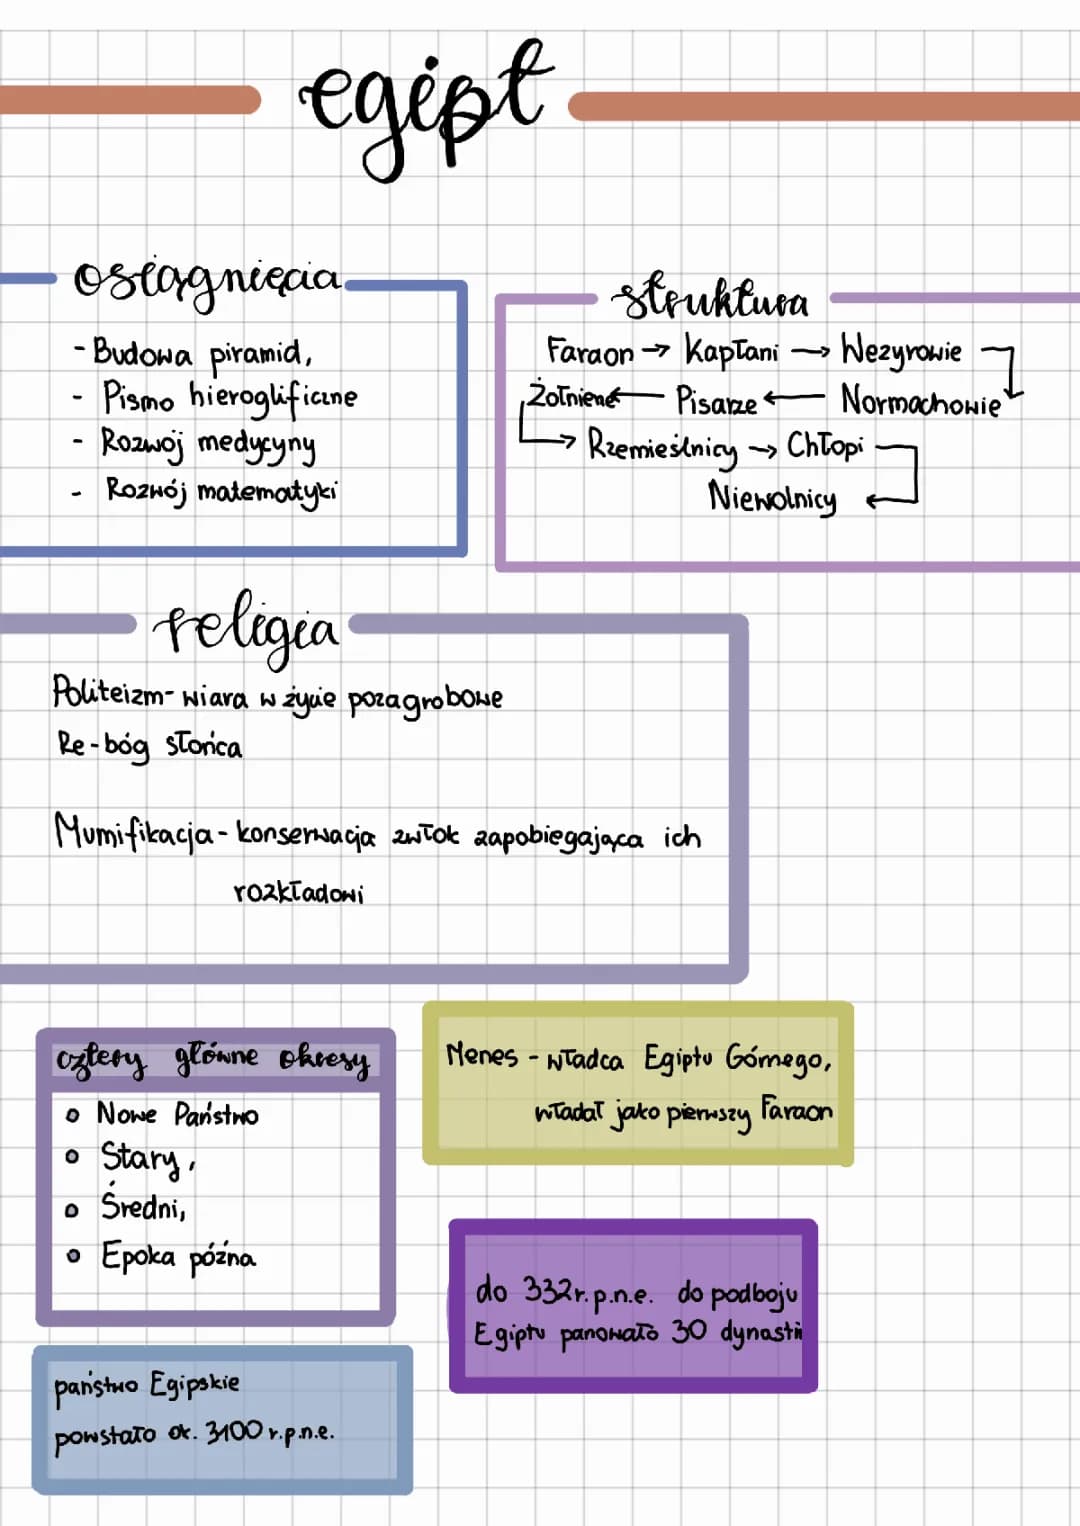 egipt
osiągnięcia
- Budowa piramid,
- Pismo hieroglificzne
- Rozwój medycyny
- Rozwój matematyki
struktura
Faraon → Kapłani → Wezyrowie
Żołnierze ← Pisarze ← Normachowie
→ Rzemieślnicy → Chłopi
Niewolnicy ←
religia
Politeizm - wiara w życie pozagrobowe
Re - bóg słońca
Mumifikacja - konserwacja zwłok zapobiegająca ich
rozkładowi
cztery główne okresy
Nowe Państwo
Stary,
Średni,
Epoka późna
Menes - władca Egiptu Górnego,
władał jako pierwszy Faraon
do 332r.p.n.e. do podboju
Egiptu panowało 30 dynastii
państwo Egipskie
powstało ok. 3100 r.p.n.e.